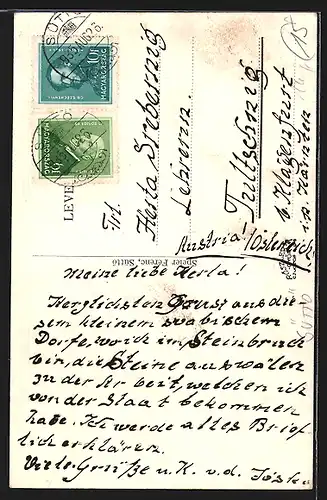 SÜTTŐ
MAGYARORSZÁG
MAGYARORSZÁG
LEVE
Frl.
Herta Srebernig
Lehrerin.
Tultschnig
b. Klagenfurt
i. Kärnten
Austria! /Österreich/
15
Speier Ferenc, Süttő
Meine liebe Herta!
Herzlichsten Gruss aus die
sem kleinem swabischem
Dorfe, wo ich im, Steinbruch
bin, die Steine auswälen
zu der Arbeit, welchen ich
von der Staat bekommen
habe. Ich werde alles Brief
lich erklären.
Viele Grüße u. K. v. d. Jóska